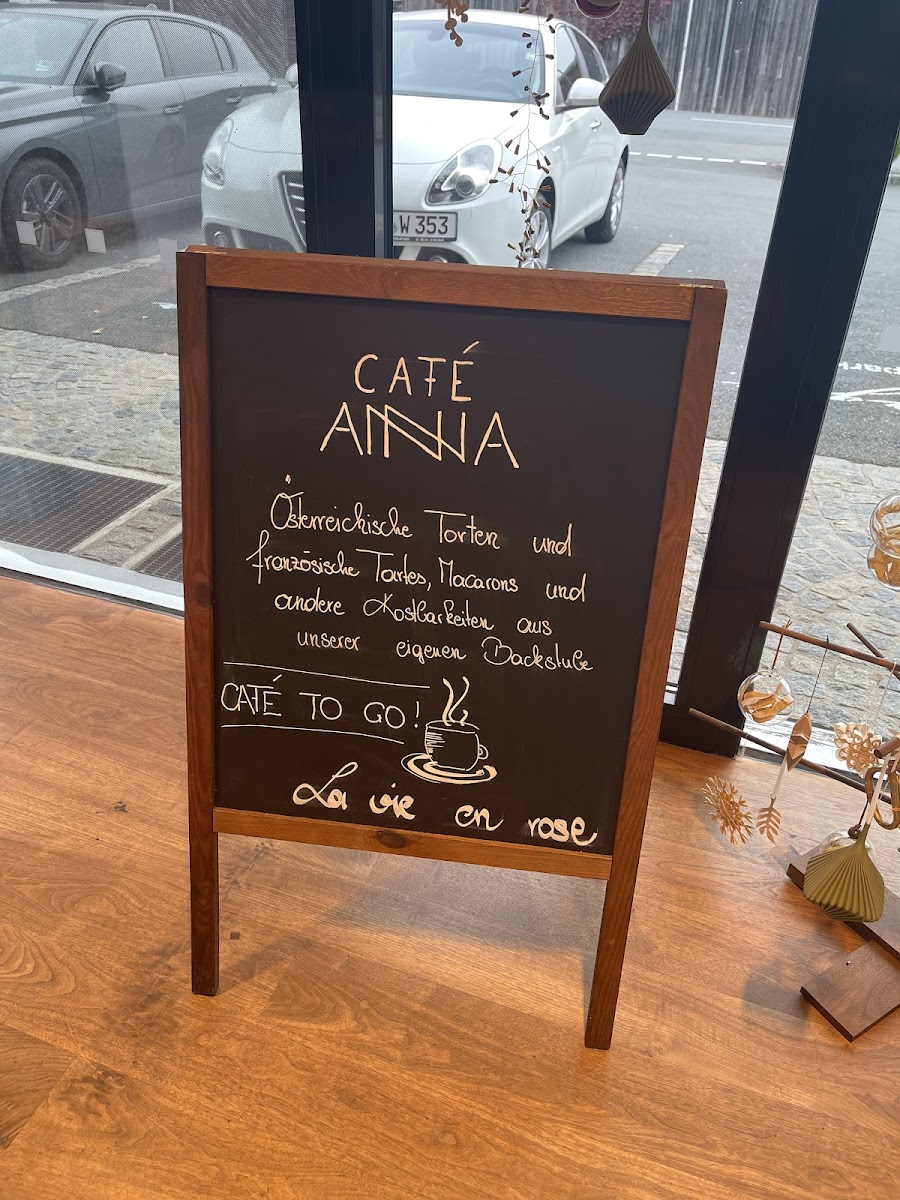 W 353
CAFÉ
ANNA
Österreichische Torten und
französische Tartes, Macarons und
andere Kostbarkeiten aus
unserer eigenen Backstube
CAFÉ TO GO!
La vie en rose